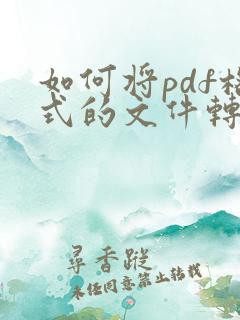 如何将pdf格
式的文件轉
尋香蹤
未经同意禁止转载